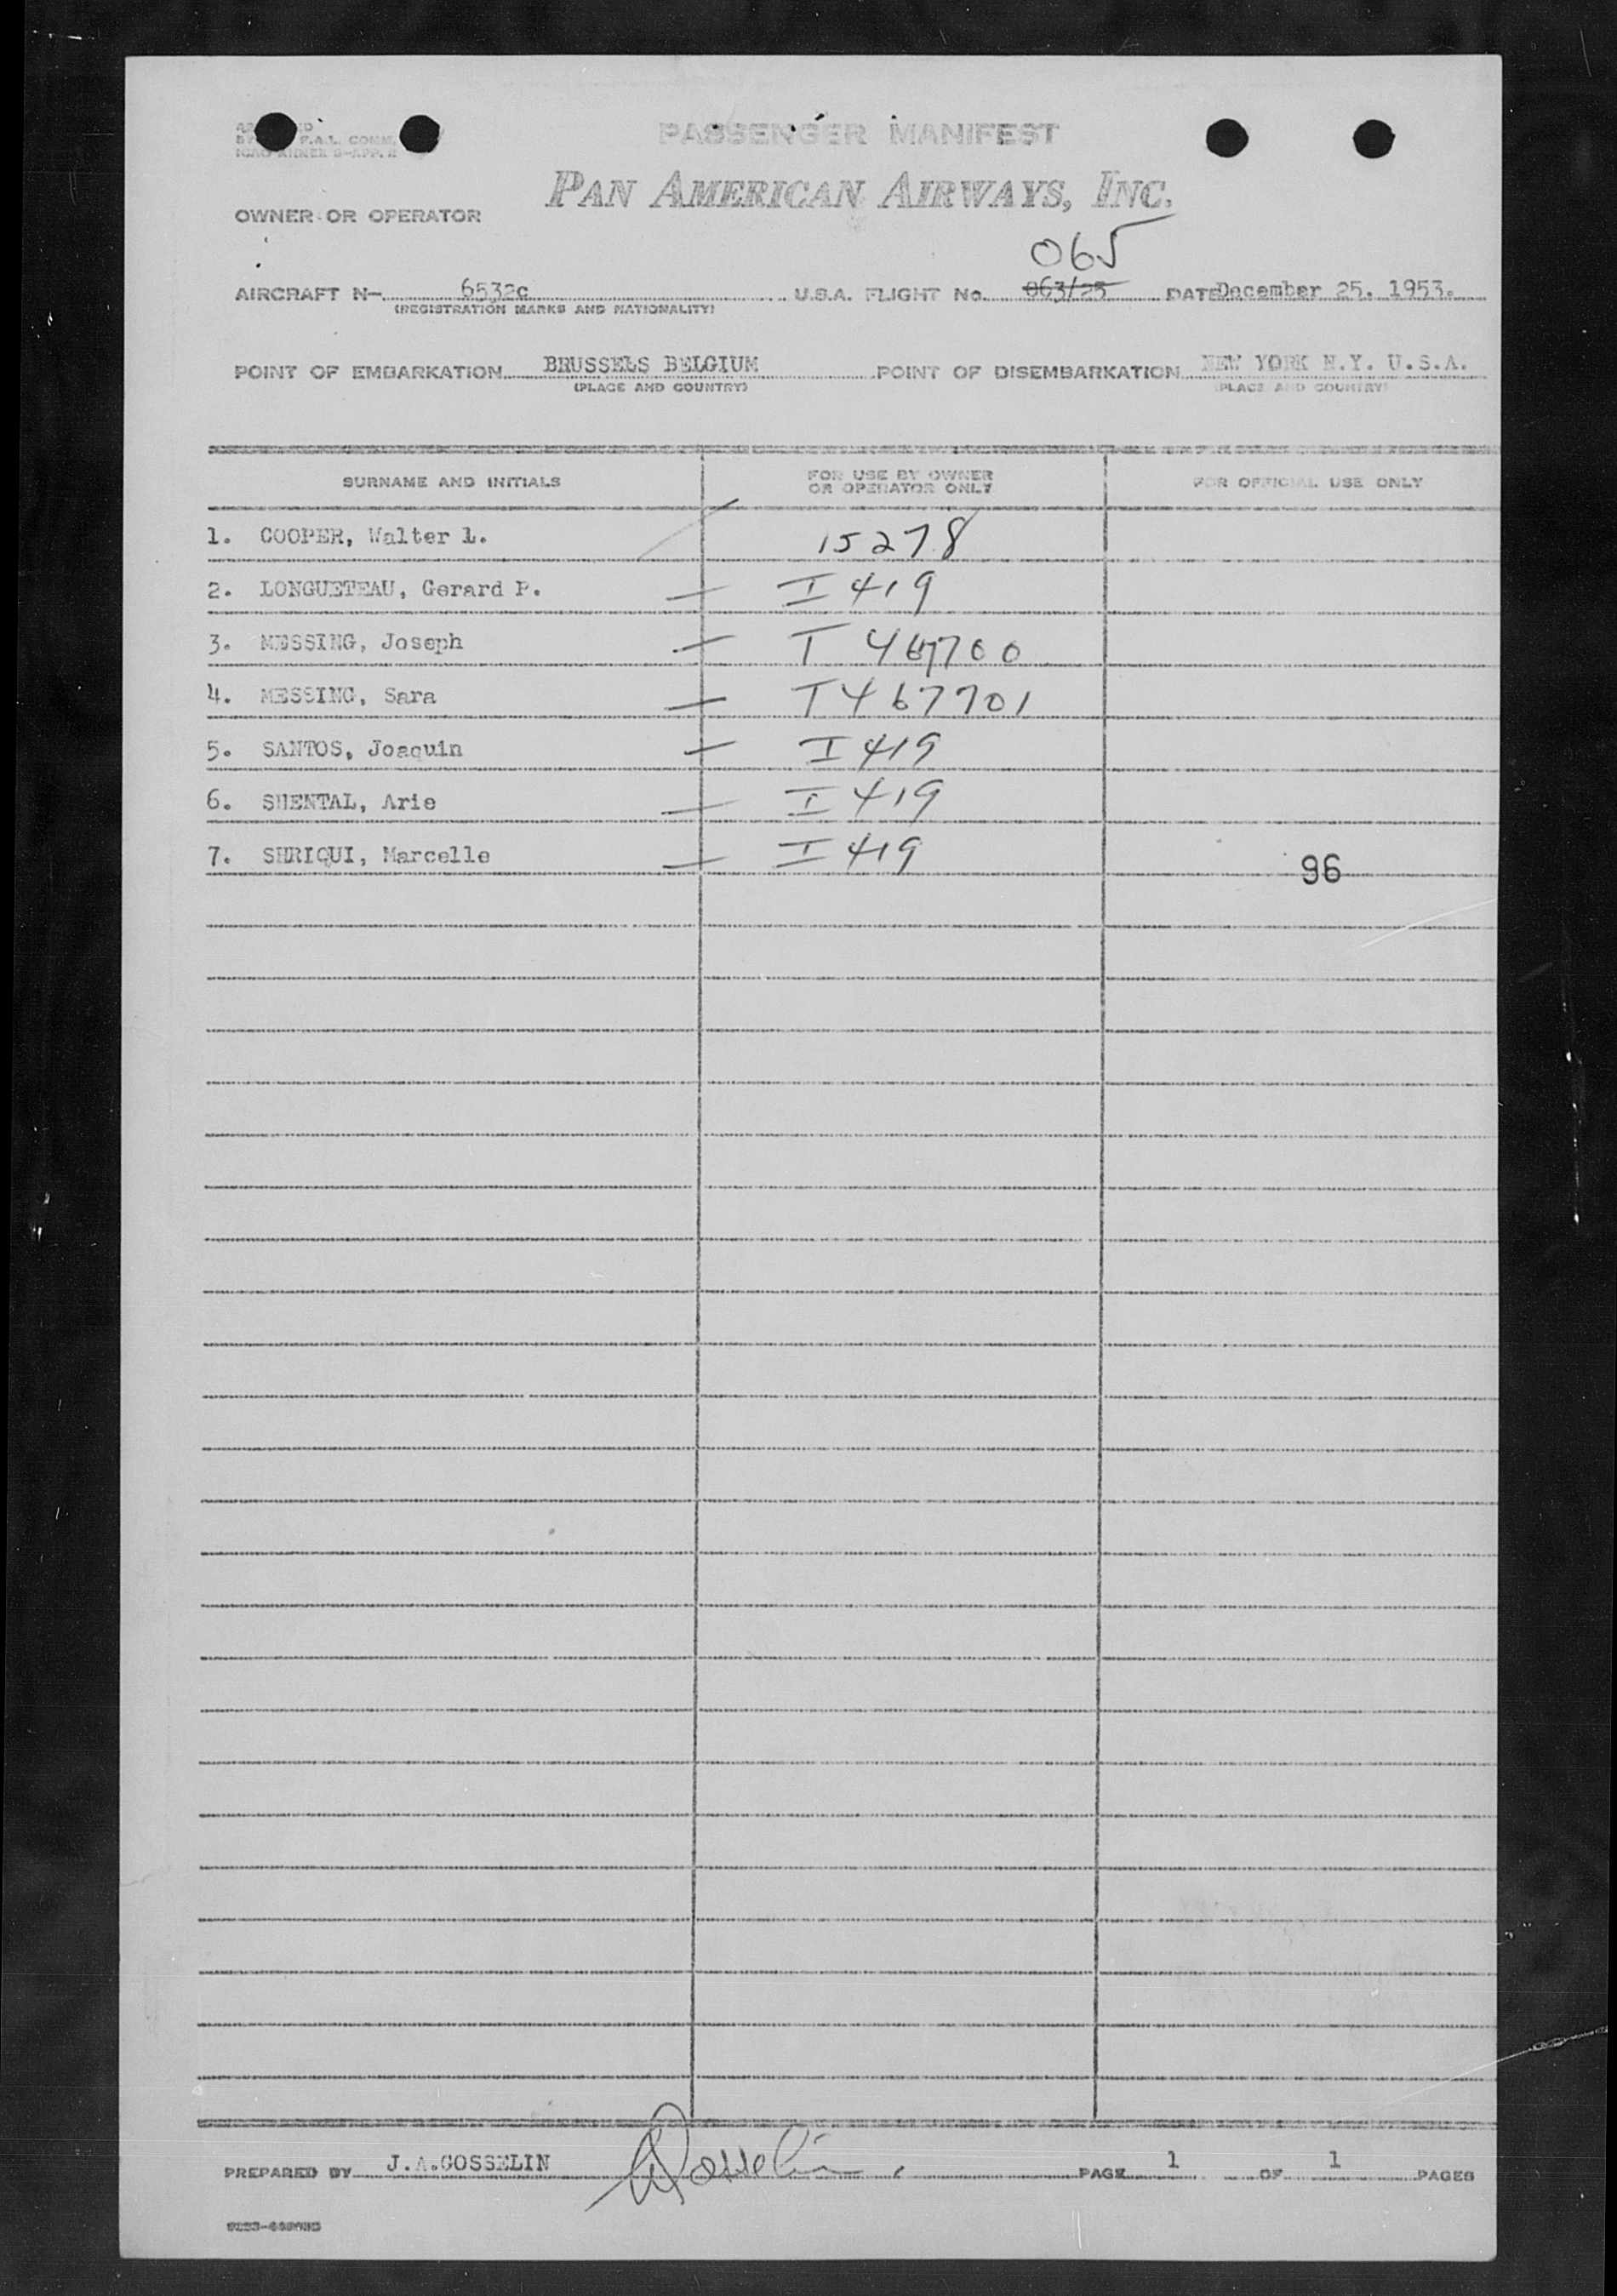 PASSENGER MANIFEST
F.A.L. COMM.
PAN AMERICAN AIRWAYS, INC.
OWNER OR OPERATOR
065
AIRCRAFT N- 6532c U.S.A. FLIGHT No. 063/25 DATE December 25. 1953.
(REGISTRATION MARKS AND NATIONALITY)
POINT OF EMBARKATION BRUSSELS BELGIUM POINT OF DISEMBARKATION NEW YORK N.Y. U.S.A.
(PLACE AND COUNTRY) (PLACE AND COUNTRY)
SURNAME AND INITIALS FOR USE BY OWNER OR OPERATOR ONLY FOR OFFICIAL USE ONLY
1. COOPER, Walter L. 15278
2. LONGUETEAU, Gerard P. I 419
3. MESSING, Joseph T 467700
4. MESSING, Sara T 467701
5. SANTOS, Joaquin I 419
6. SHENTAL, Arie I 419
7. SHRIQUI, Marcelle I 419
96
PREPARED BY J.A.GOSSELIN Gosselin PAGE 1 OF 1 PAGES